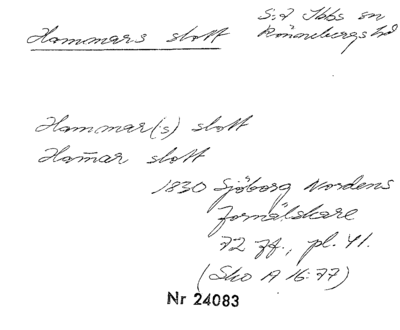 Hammars slott
S:t Ibbs sn
Rönnebergs hd
Hammar(s) slott
Ham̄ar slott
1830 Sjöborg Nordens
fornälskare
72 ff., pl. 41.
(Sko A 16:77)
Nr 24083